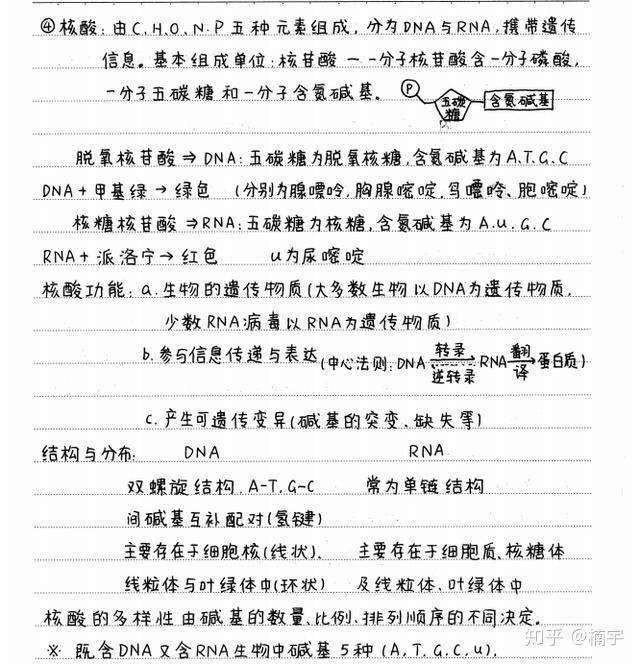 ④核酸:由C.H.O.N.P五种元素组成,分为DNA与RNA,携带遗传
信息。基本组成单位:核苷酸 — 一分子核苷酸含一分子磷酸,
一分子五碳糖和一分子含氮碱基。 P 五碳糖 含氮碱基
脱氧核苷酸⇒DNA:五碳糖为脱氧核糖,含氮碱基为A.T.G.C
DNA+甲基绿→绿色 (分别为腺嘌呤,胸腺嘧啶,鸟嘌呤、胞嘧啶)
核糖核苷酸⇒RNA:五碳糖为核糖,含氮碱基为A.u.G.C
RNA+派洛宁→红色 u为尿嘧啶
核酸功能:a.生物的遗传物质(大多数生物以DNA为遗传物质,
少数RNA病毒以RNA为遗传物质)
b.参与信息传递与表达(中心法则:DNA 转录 逆转录 RNA 翻译→蛋白质)
c.产生可遗传变异(碱基的突变、缺失等)
结构与分布: DNA RNA
双螺旋结构,A-T,G-C 常为单链结构
间碱基互补配对(氢键)
主要存在于细胞核(线状)、 主要存在于细胞质、核糖体
线粒体与叶绿体中(环状) 及线粒体、叶绿体中
核酸的多样性由碱基的数量、比例、排列顺序的不同决定。
※ 既含DNA又含RNA生物中碱基5种(A,T,G,C,u),
知乎 @楠宇